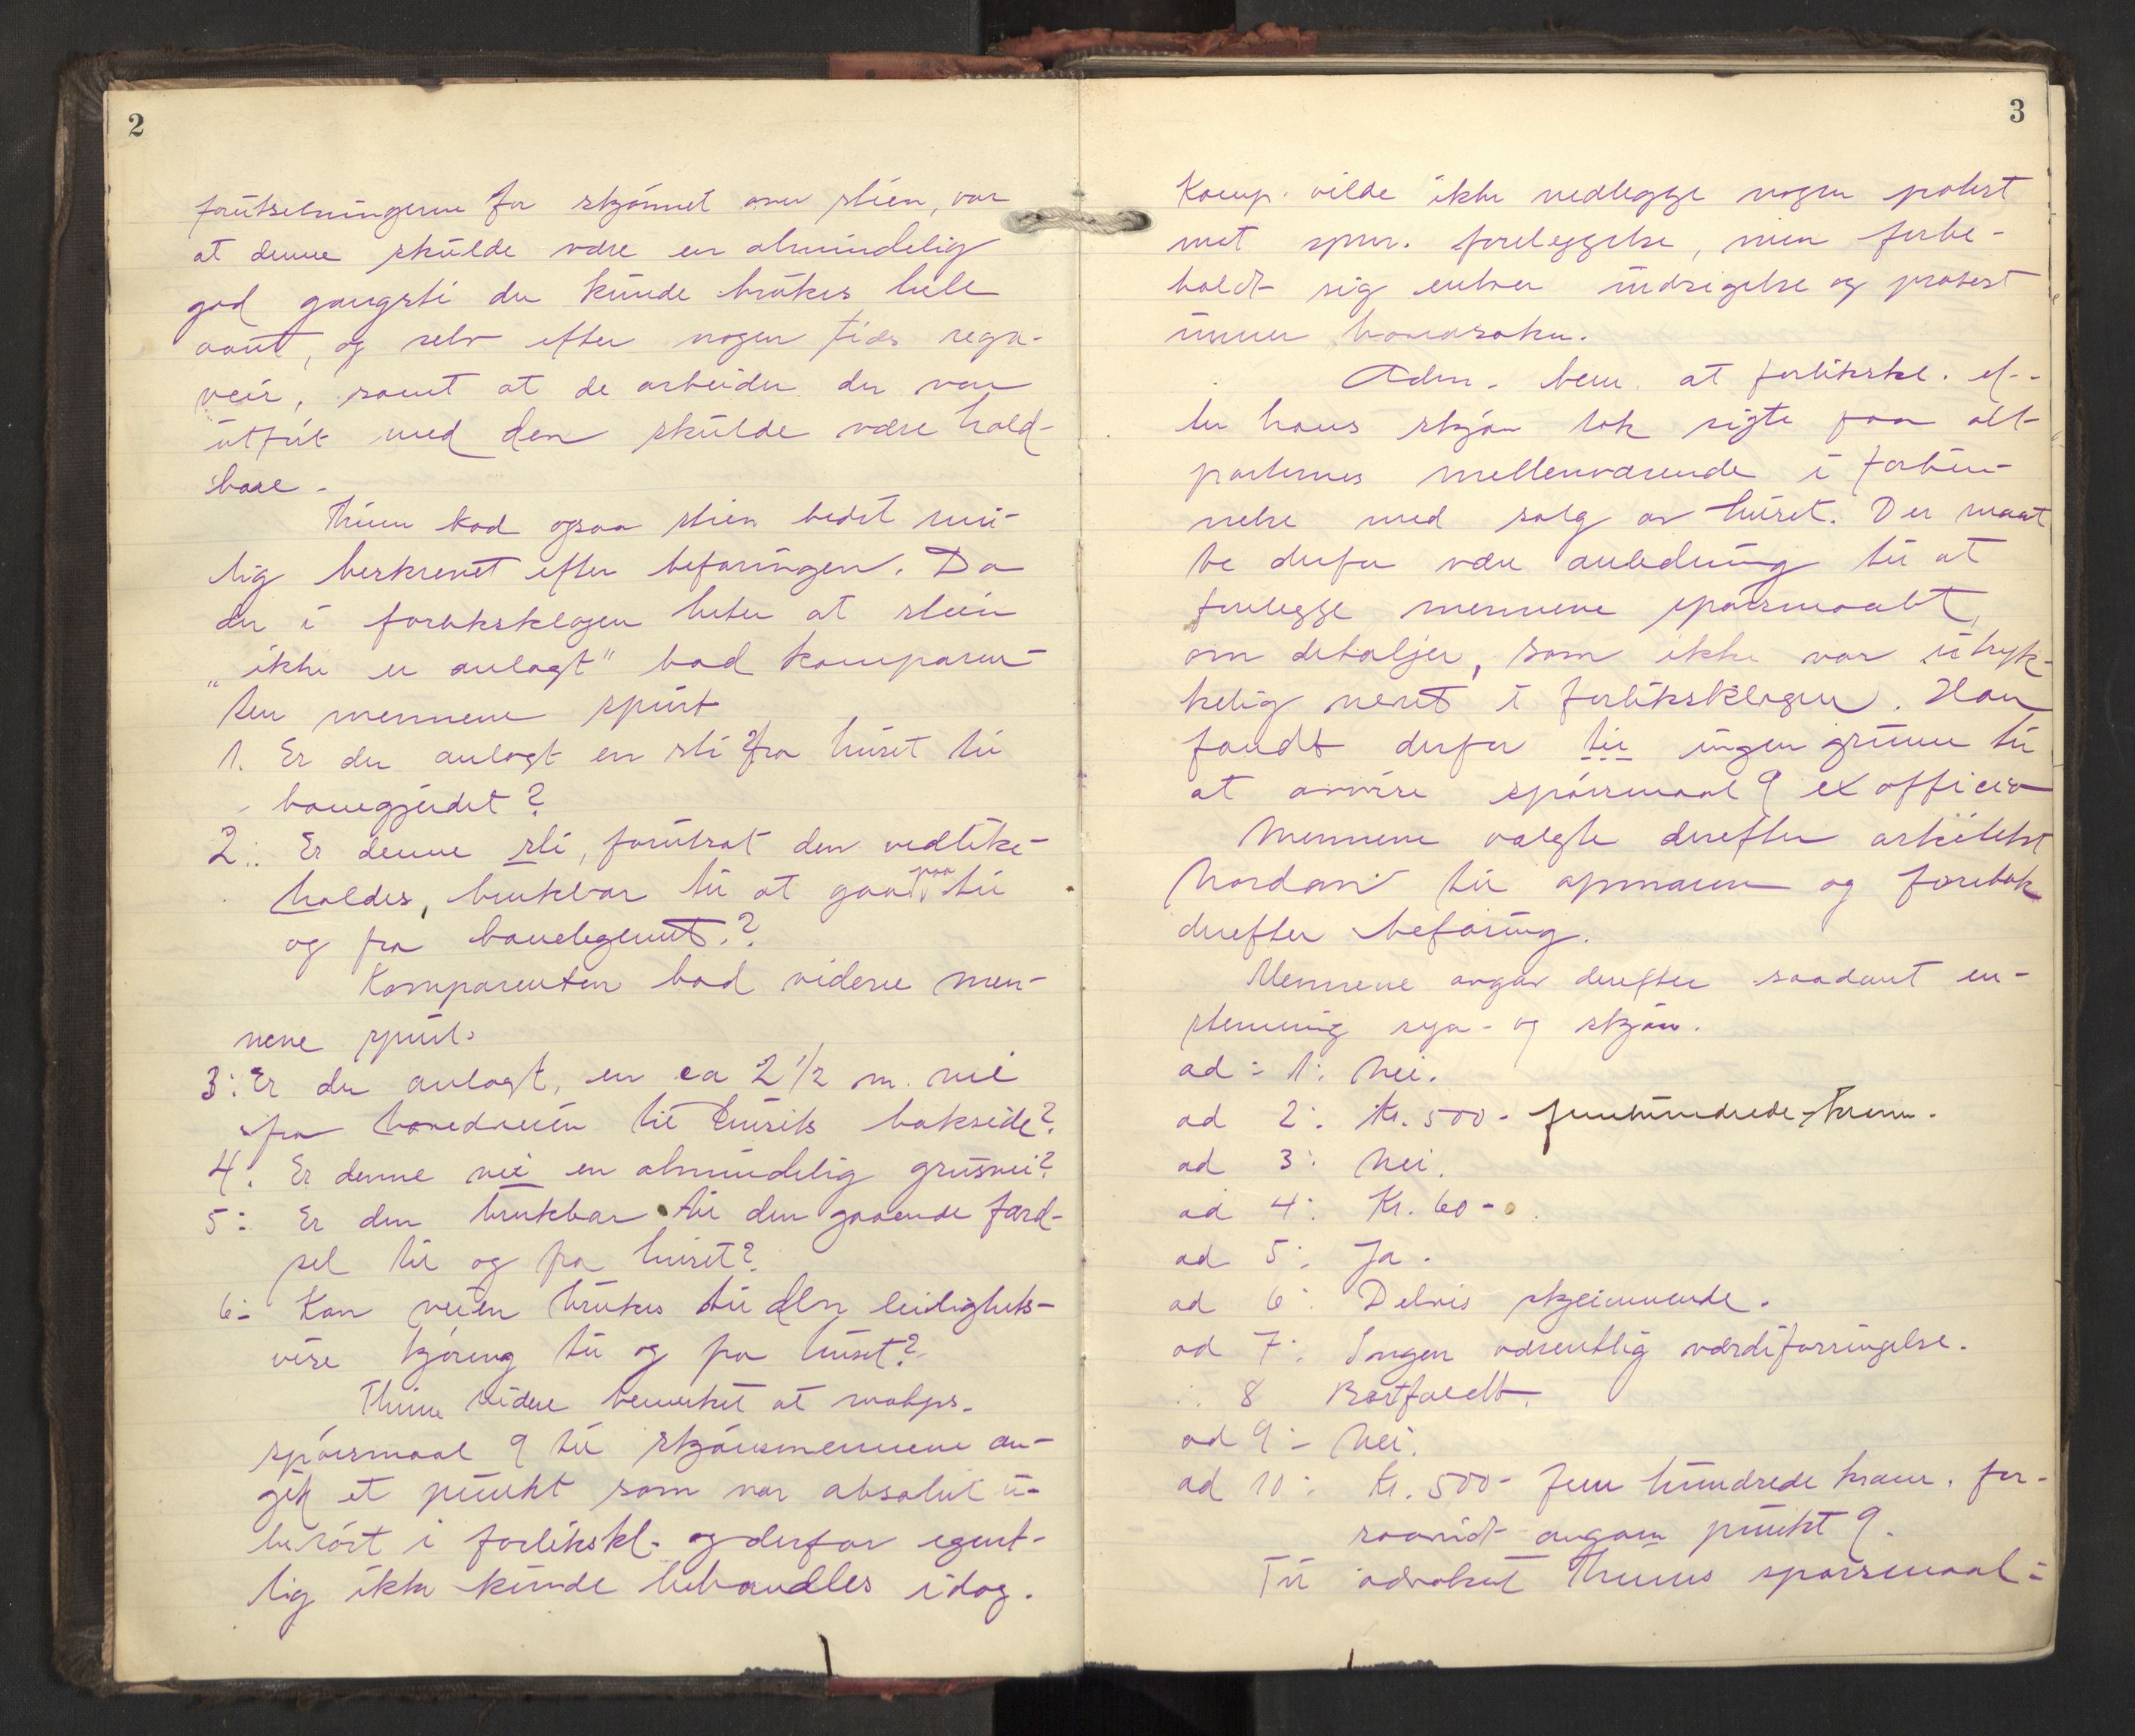 2
forutsetningerne for skjønnet over stien, var
at denne skulde være en almindelig
god gangsti der kunde brukes hele
aaret, og selv efter nogen tids regn-
veir, samt at de arbeider der var
utført med den skulde være hold-
bare.
Thum bad ogsaa stien bedst mu-
lig beskrevet efter befaringen. Da
der i forliksklagen heter at stien
„ikke er anlagt" bad komparen-
ten mennene spurt
1. Er der anlagt en sti fra huset til
banegjerdet?
2: Er denne sti, forutsat den vedlike-
holdes, brukbar til at gaa paa til
og fra banelegemet?
Komparenten bad videre men-
nene spurt.
3: Er der anlagt, en ca 2 1/2 m. vei
fra hovedveien til husets bakside?
4: Er denne vei en almindelig grusvei?
5: Er den brukbar til den gaaende færd-
sel til og fra huset?
6: Kan veien brukes til den leiligheds-
vise kjøring til og fra huset?
Thum videre bemerket at motps.
spørsmaal 9 til skjønsmennene an-
gik et punkt som var absolut u-
berørt i forlikskl. og derfor egent-
lig ikke kunde behandles idag.
3
Komp. vilde ikke nedlegge nogen protest
mot spm. foreleggelse, men forbe-
holdt sig enhver indsigelse og protest
under hovedsaken.
Adm. bem. at forlikskl. ef-
ter hans skjøn tok sigte paa alt
parternes mellemværende i forbin-
nelse med salg av huset. Der maat
te derfor være anledning til at
forelegge mennene spørsmaalet,
om detaljer, som ikke var uttryk-
kelig nevnt i forliksklagen. Han
fandt derfor til ingen grunn til
at avvise spørsmaal 9 ex officio
Mennene valgte derefter arkitekt
Nordan til opmann og foretok
derefter befaring.
Mennene avgav derefter saadant en-
stemmig syn- og skjøn.
ad: 1: Nei.
ad 2: Kr. 500- femhundrede-kroner.
ad 3: Nei.
ad 4: Kr. 60-
ad 5: Ja.
ad 6: Delvis skjemmende.
ad 7: Ingen væsentlig værdiforringelse.
: 8 Bortfaldt.
ad 9: Nei.
ad 10: Kr. 500- fem hundrede kroner, for-
saavidt angaar punkt 9.
Til advokat Thums spørsmaal: